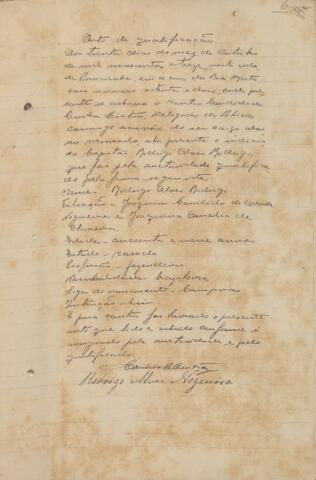 Auto de qualificação
Aos trinta dias do mez de Outubro
de mil novecentos e treze, nesta villa
de Piracicaba, em a rua da Boa Morte
casa numero oitenta e dois, onde pre-
sente se achava o
Cunha Castro, Delegado de Policia
commigo escrivão de seu cargo abai-
xo nomeado, ahi presente o indicia-
do Capitão Rodrigo Alves Nogueira
que foi pela auctoridade qualifica-
do pela forma seguinte
Nome - Rodrigo Alves Nogueira
Filiação - Joaquim Candido de
Nogueira e Joaquina Amelia de
Oliveira
Idade - cincoenta e nove annos
Estado - casado
Profissão - fazendeiro
Nacionalidade brazileira
Logar do nascimento - Campinas
Instrução - sim
E para constar foi lavrado o presente
auto que lido e achado conforme é
assignado pela auctoridade e pelo
qualificado.
Rodrigo Alves Nogueira